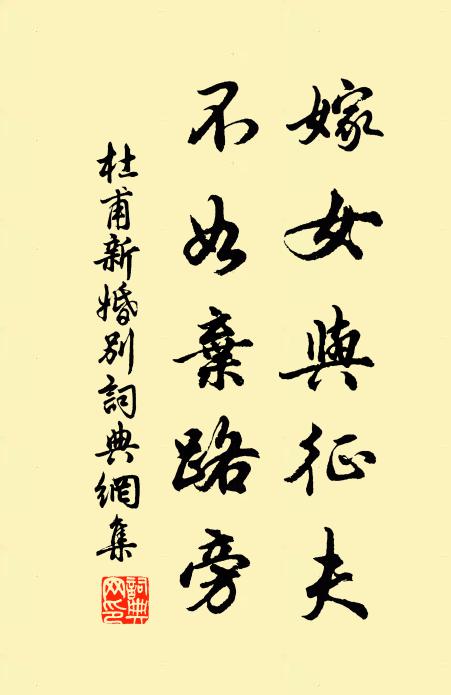 嫁女與征夫
不如棄路旁
杜甫新婚別詞典網集
詞典
网印